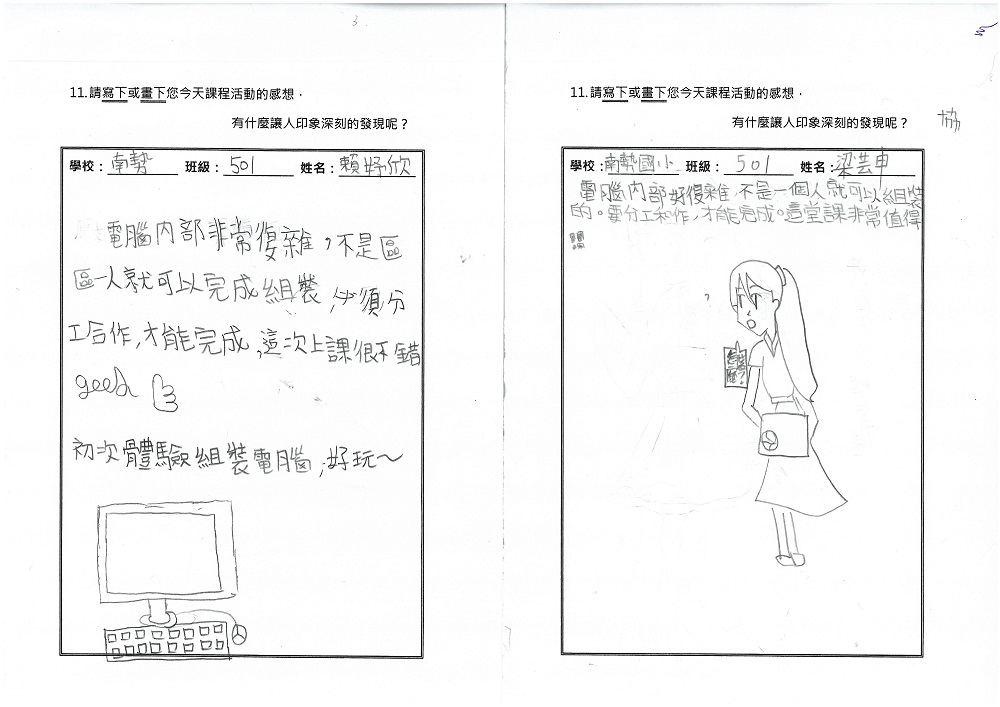 3
11.請寫下或畫下您今天課程活動的感想，
有什麼讓人印象深刻的發現呢？
學校：南勢 班級：501 姓名：賴妤欣
電腦內部非常復雜，不是區
區一人就可以完成組裝，必須分
工合作,才能完成,這次上課很不錯
good
初次體驗組裝電腦,好玩～
11.請寫下或畫下您今天課程活動的感想，
有什麼讓人印象深刻的發現呢？
協
學校：南勢國小 班級：501 姓名：梁芸申
電腦內部好復雜,不是一個人就可以組裝
的。要分工和作,才能完成。這堂課非常值得